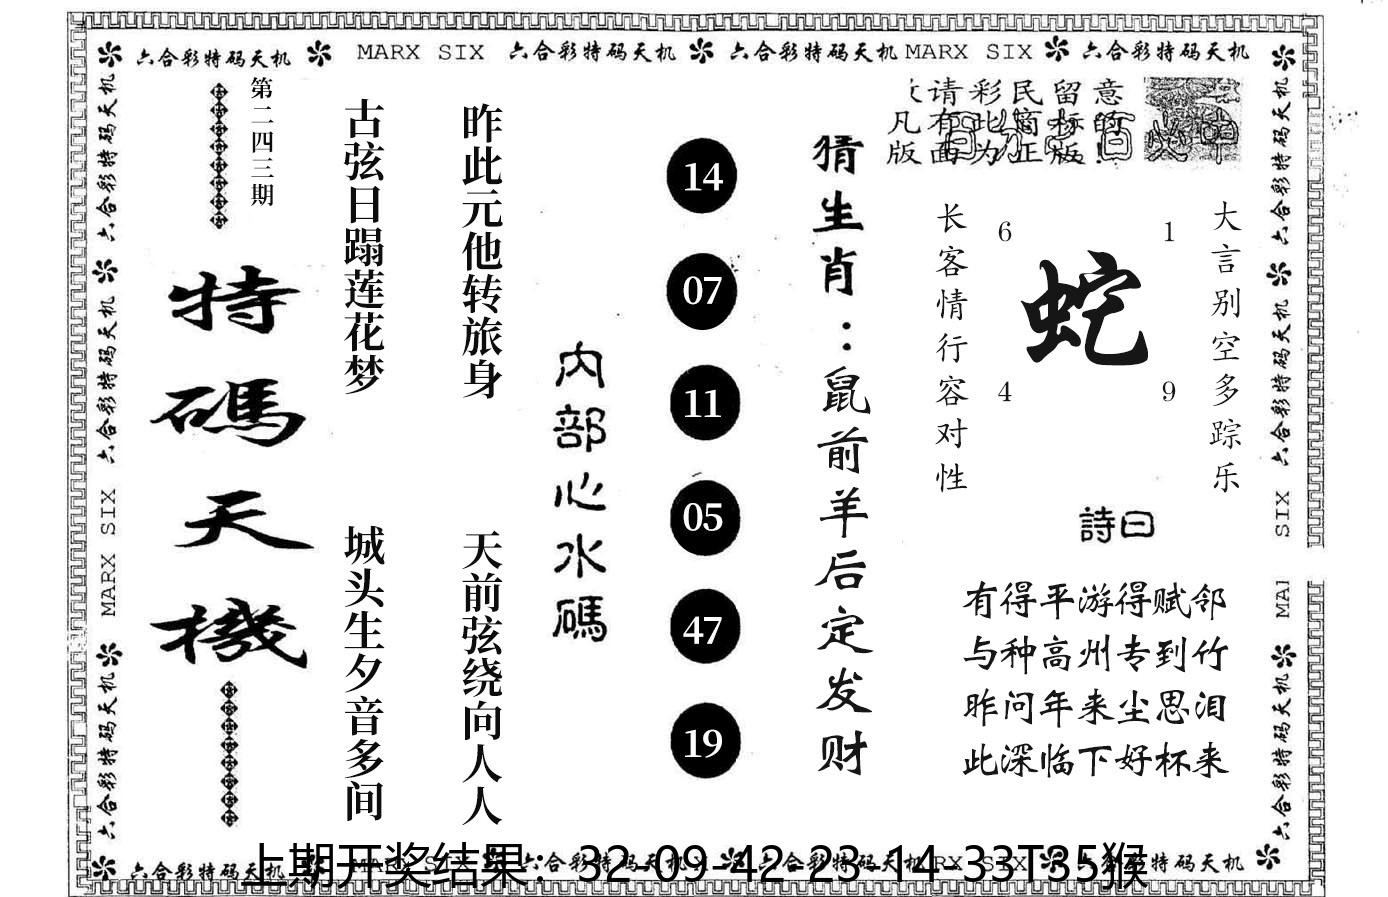 六合彩特码天机 MARX SIX 六合彩特码天机 六合彩特码天机 MARX SIX 六合彩特码天机
第二四三期
特碼天機
古弦日蹋莲花梦 城头生夕音多间
昨此元他转旅身 天前弦绕向人人
内部心水碼
14
07
11
05
47
19
猜生肖:鼠前羊后定发财
请彩民留意
凡有此商标的
版面为正版!
长客情行容对性
6 1
蛇
4 9
大言别空多踪乐
詩曰
有得平游得赋邻
与种高州专到竹
昨问年来尘思泪
此深临下好杯来
六合彩特码天机 MARX SIX 六合彩特码天机
六合彩特码天机 SIX
六合彩特码天机
六合彩特码天机 MARX SIX 六合彩特码天机 RX SIX 特码天机
上期开奖结果:32-09-42-23-14-33T35猴